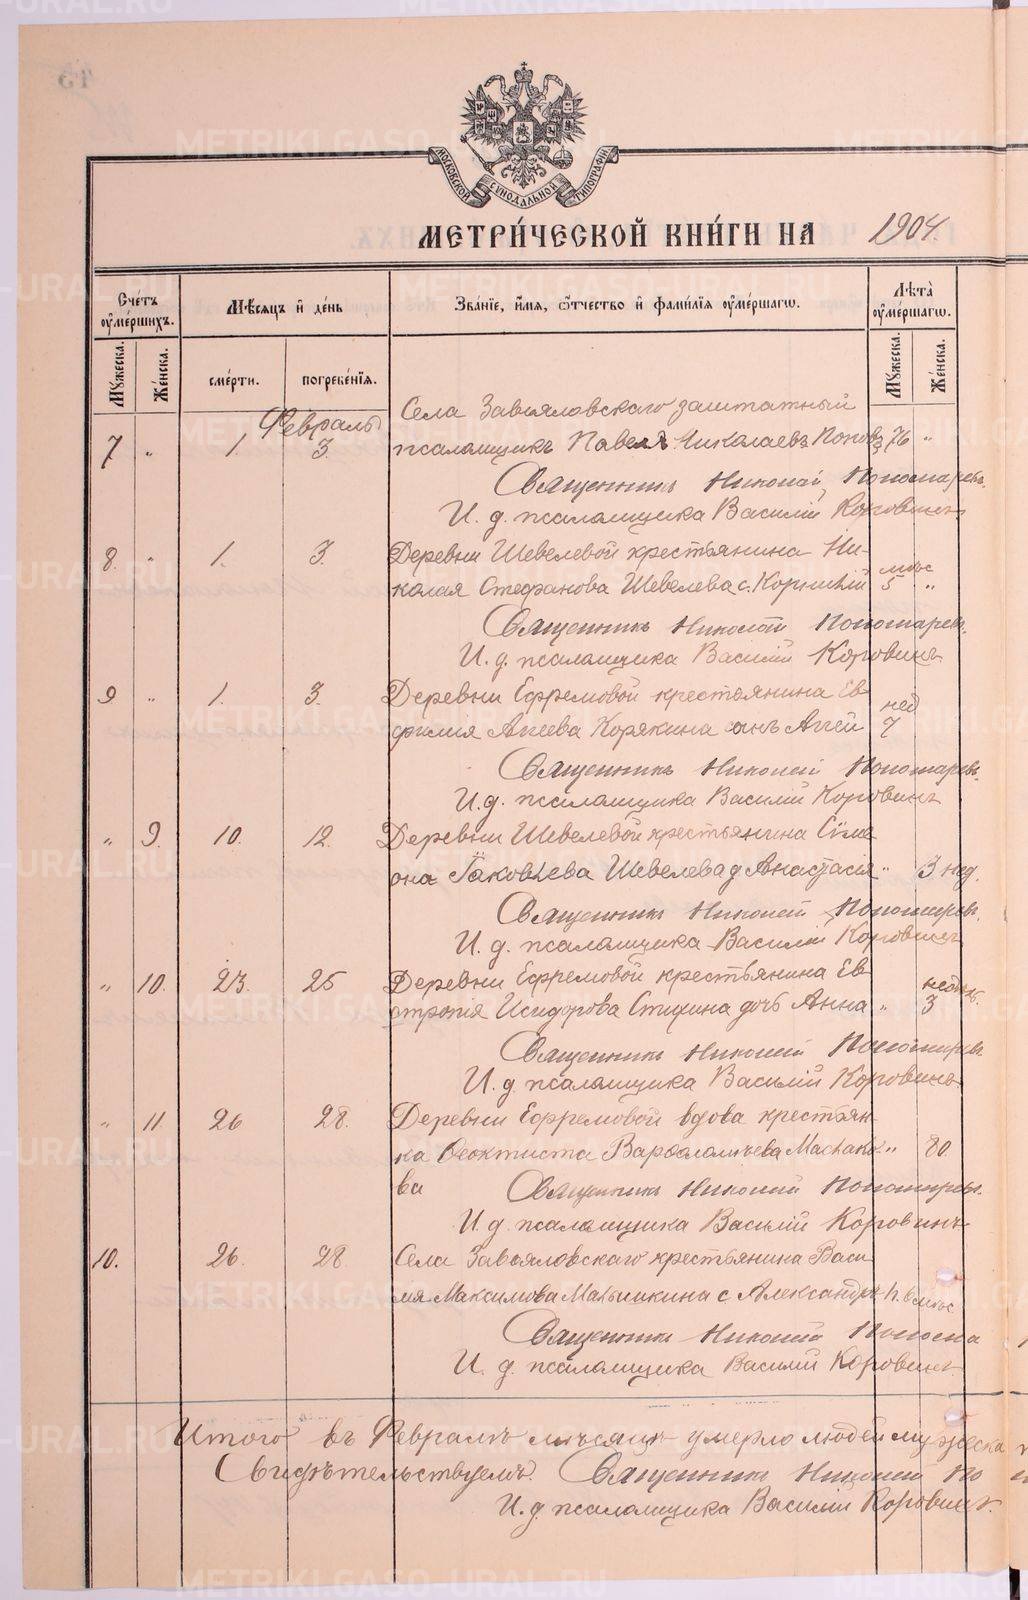 МОСКОВСКОЙ СѴНОДАЛЬНОЙ ТИПОГРАФІИ
МЕТРИ́ЧЕСКОЙ КНИ́ГИ НА 1904.
Сче́тъ ᲂумершихъ. Мѣсяцъ и день Зва́нїе, и́мя, ѻ́тчество и фами́лїя ᲂуме́ршагѡ. Лѣта̀ ᲂуме́ршагѡ.
Мꙋжеска. Же́нска. сме́рти. погребе́нїя. Мꙋжеска. Же́нска.
Февраль
Села Завьяловскаго заштатный
7 " 1. 3. псаломщикъ Павелъ Николаевъ Поповъ 76 "
Священникъ Николай Пономаревъ.
И. д. псаломщика Василій Коровинъ
8. " 1. 3. Деревни Шевелевой крестьянина Ни-
колая Стефанова Шевелева с. Корнилій 5 мѣс "
Священникъ Николай Пономаревъ.
И. д. псаломщика Василій Коровинъ
9 " 1. 3. Деревни Ефремовой крестьянина Ев-
фимія Аггеева Корякина сынъ Аггей нед 7
Священникъ Николай Пономаревъ.
И. д. псаломщика Василій Коровинъ
" 9. 10. 12. Деревни Шевелевой крестьянина Сѵме
она Іаковлева Шевелева д Анастасія " 3 нед.
Священникъ Николай Пономаревъ.
И. д. псаломщика Василій Коровинъ
" 10. 23. 25 Деревни Ефремовой крестьянина Ев
стропія Исидорова Стихина дочь Анна " 3
Священникъ Николай Пономаревъ.
И. д. псаломщика Василій Коровинъ
" 11 26 28. Деревни Ефремовой вдова крестьян-
ка Ѳеоктиста Варѳоломеева " 80.
ва Священникъ Николай Пономаревъ.
И. д. псаломщика Василій Коровинъ
10. 26. 28. Села Завьяловскаго крестьянина Васи
лія Максимова с Александръ мѣс
Священникъ Николай Понома
И. д. псаломщика Василій Коровинъ
Итого въ Февралѣ мѣсяцѣ умерло людей мужеска
Свидѣтельствуемъ. Священникъ Николай По
И. д. псаломщика Василій Коровинъ.
METRIKI.GASO-URAL.RU